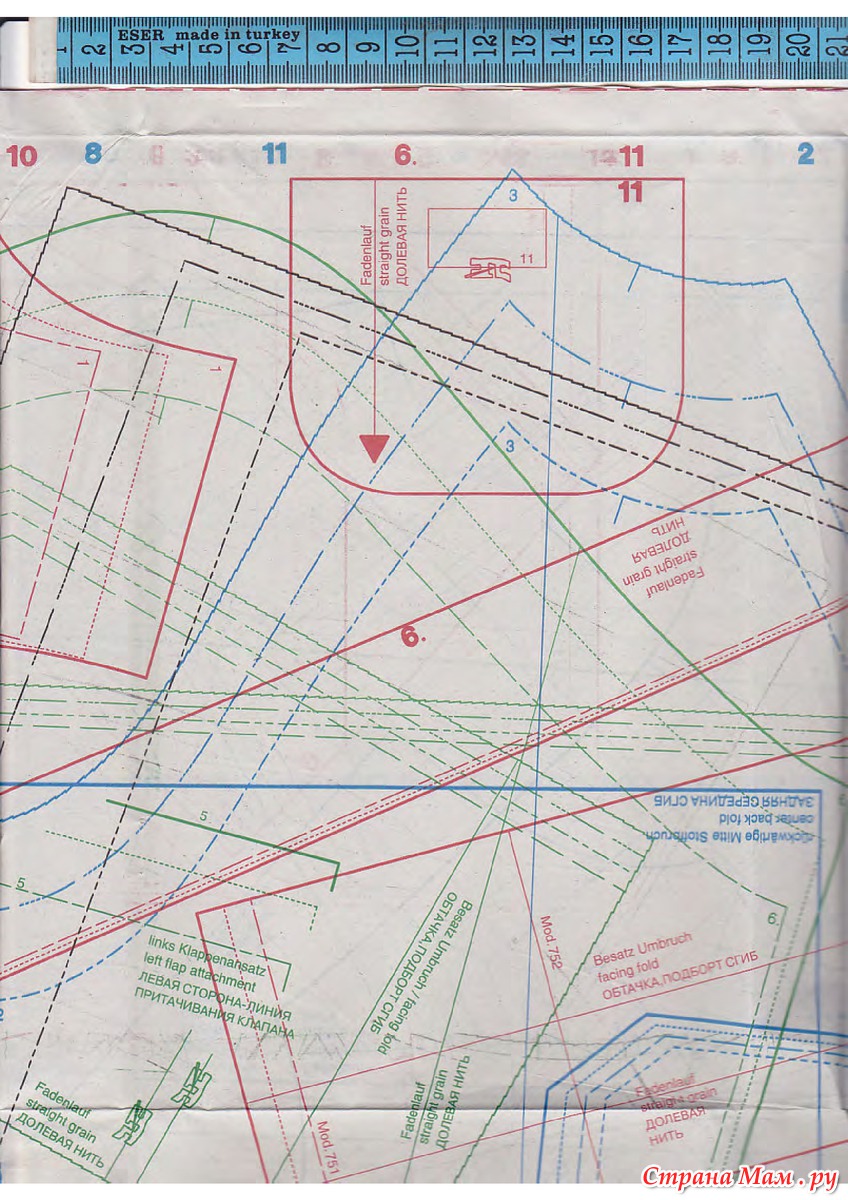 ESER made in turkey
1 2 3 4 5 6 7 8 9 10 11 12 13 14 15 16 17 18 19 20 21
10 8 11 6. 11 2
11
3
Fadenlauf
straight grain
ДОЛЕВАЯ НИТЬ
11
1
1
3
Fadenlauf
straight grain
ДОЛЕВАЯ
НИТЬ
6.
rückwärtige Mitte Stoffbruch
center back fold
ЗАДНЯЯ СЕРЕДИНА СГИБ
5
5
6.
links Klappenansatz
left flap attachment
ЛЕВАЯ СТОРОНА-ЛИНИЯ
ПРИТАЧИВАНИЯ КЛАПАНА
Besatz Umbruch / facing fold
ОБТАЧКА,ПОДБОРТ СГИБ
Mod.752
Besatz Umbruch
facing fold
ОБТАЧКА,ПОДБОРТ СГИБ
Fadenlauf
straight grain
ДОЛЕВАЯ НИТЬ
Fadenlauf
straight grain
ДОЛЕВАЯ НИТЬ
Mod.751
Fadenlauf
straight grain
ДОЛЕВАЯ
НИТЬ
СтранаМам.ру